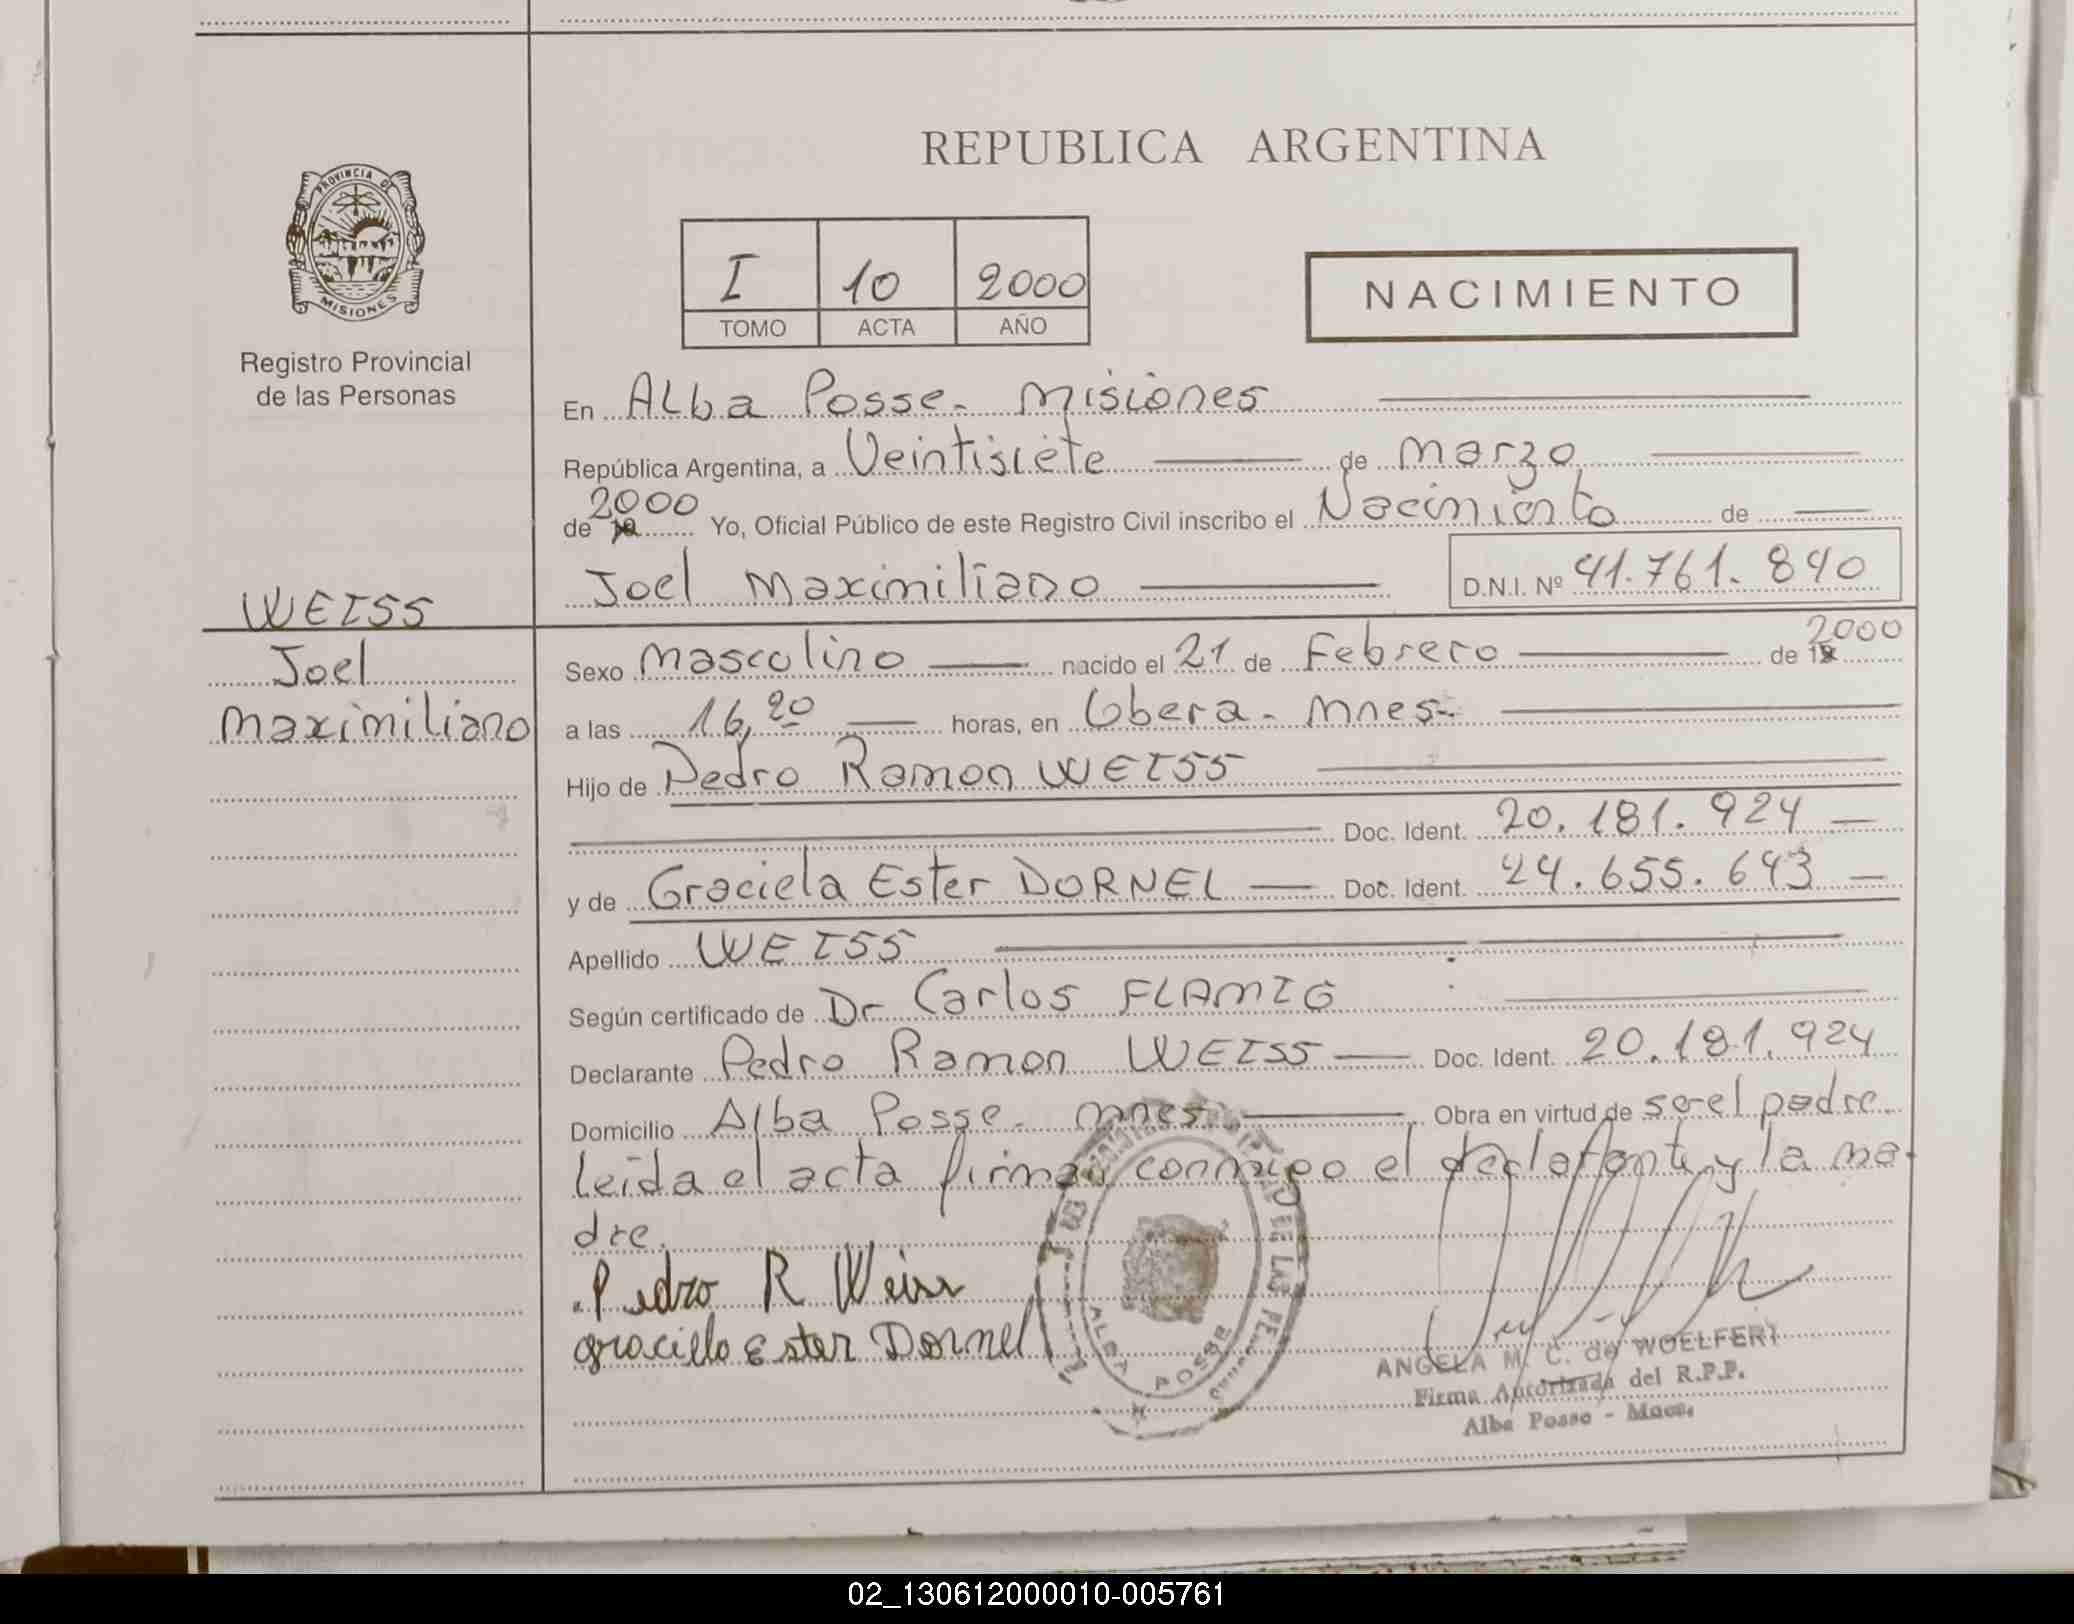 REPUBLICA ARGENTINA
PROVINCIA DE
MISIONES
Registro Provincial
de las Personas
I 10 2000
TOMO ACTA AÑO
NACIMIENTO
En Alba Posse - Misiones
República Argentina, a Veintisiete de marzo
de 2000 Yo, Oficial Público de este Registro Civil inscribo el Nacimiento de
Joel Maximiliano D.N.I. Nº 41.761.840
WEISS
Joel
Maximiliano
Sexo masculino nacido el 21 de Febrero de 2000
a las 16,20 horas, en Obera - Mnes -
Hijo de Pedro Ramon WEISS
Doc. Ident. 20.181.924
y de Graciela Ester DORNEL Doc. Ident. 24.655.643
Apellido WEISS
Según certificado de Dr Carlos FLAMIG
Declarante Pedro Ramon WEISS Doc. Ident. 20.181.924
Domicilio Alba Posse - mnes Obra en virtud de ser el padre.
leida el acta firman conmigo el declarante y la ma-
dre.
Pedro R Weiss
graciela Ester Dornel
ALBA POSSE
ANGELA M. C. de WOELFERT
Firma Autorizada del R.P.P.
Alba Posse - Mnes.
02_130612000010-005761